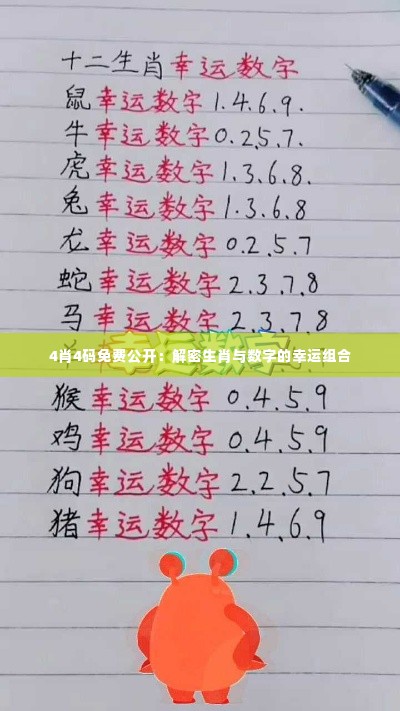 十二生肖幸运数字
鼠幸运数字1.4.6.9.
牛幸运数字0.2.5.7.
虎幸运数字1.3.6.8.
兔幸运数字1.3.6.8
龙幸运数字0.2.5.7
蛇幸运数字2.3.7.8
马幸运数字2.3.7.8
幸运数字
4肖4码免费公开：解密生肖与数字的幸运组合
猴幸运数字0.4.5.9
鸡幸运数字0.4.5.9
狗幸运数字2.2.5.7
猪幸运数字1.4.6.9